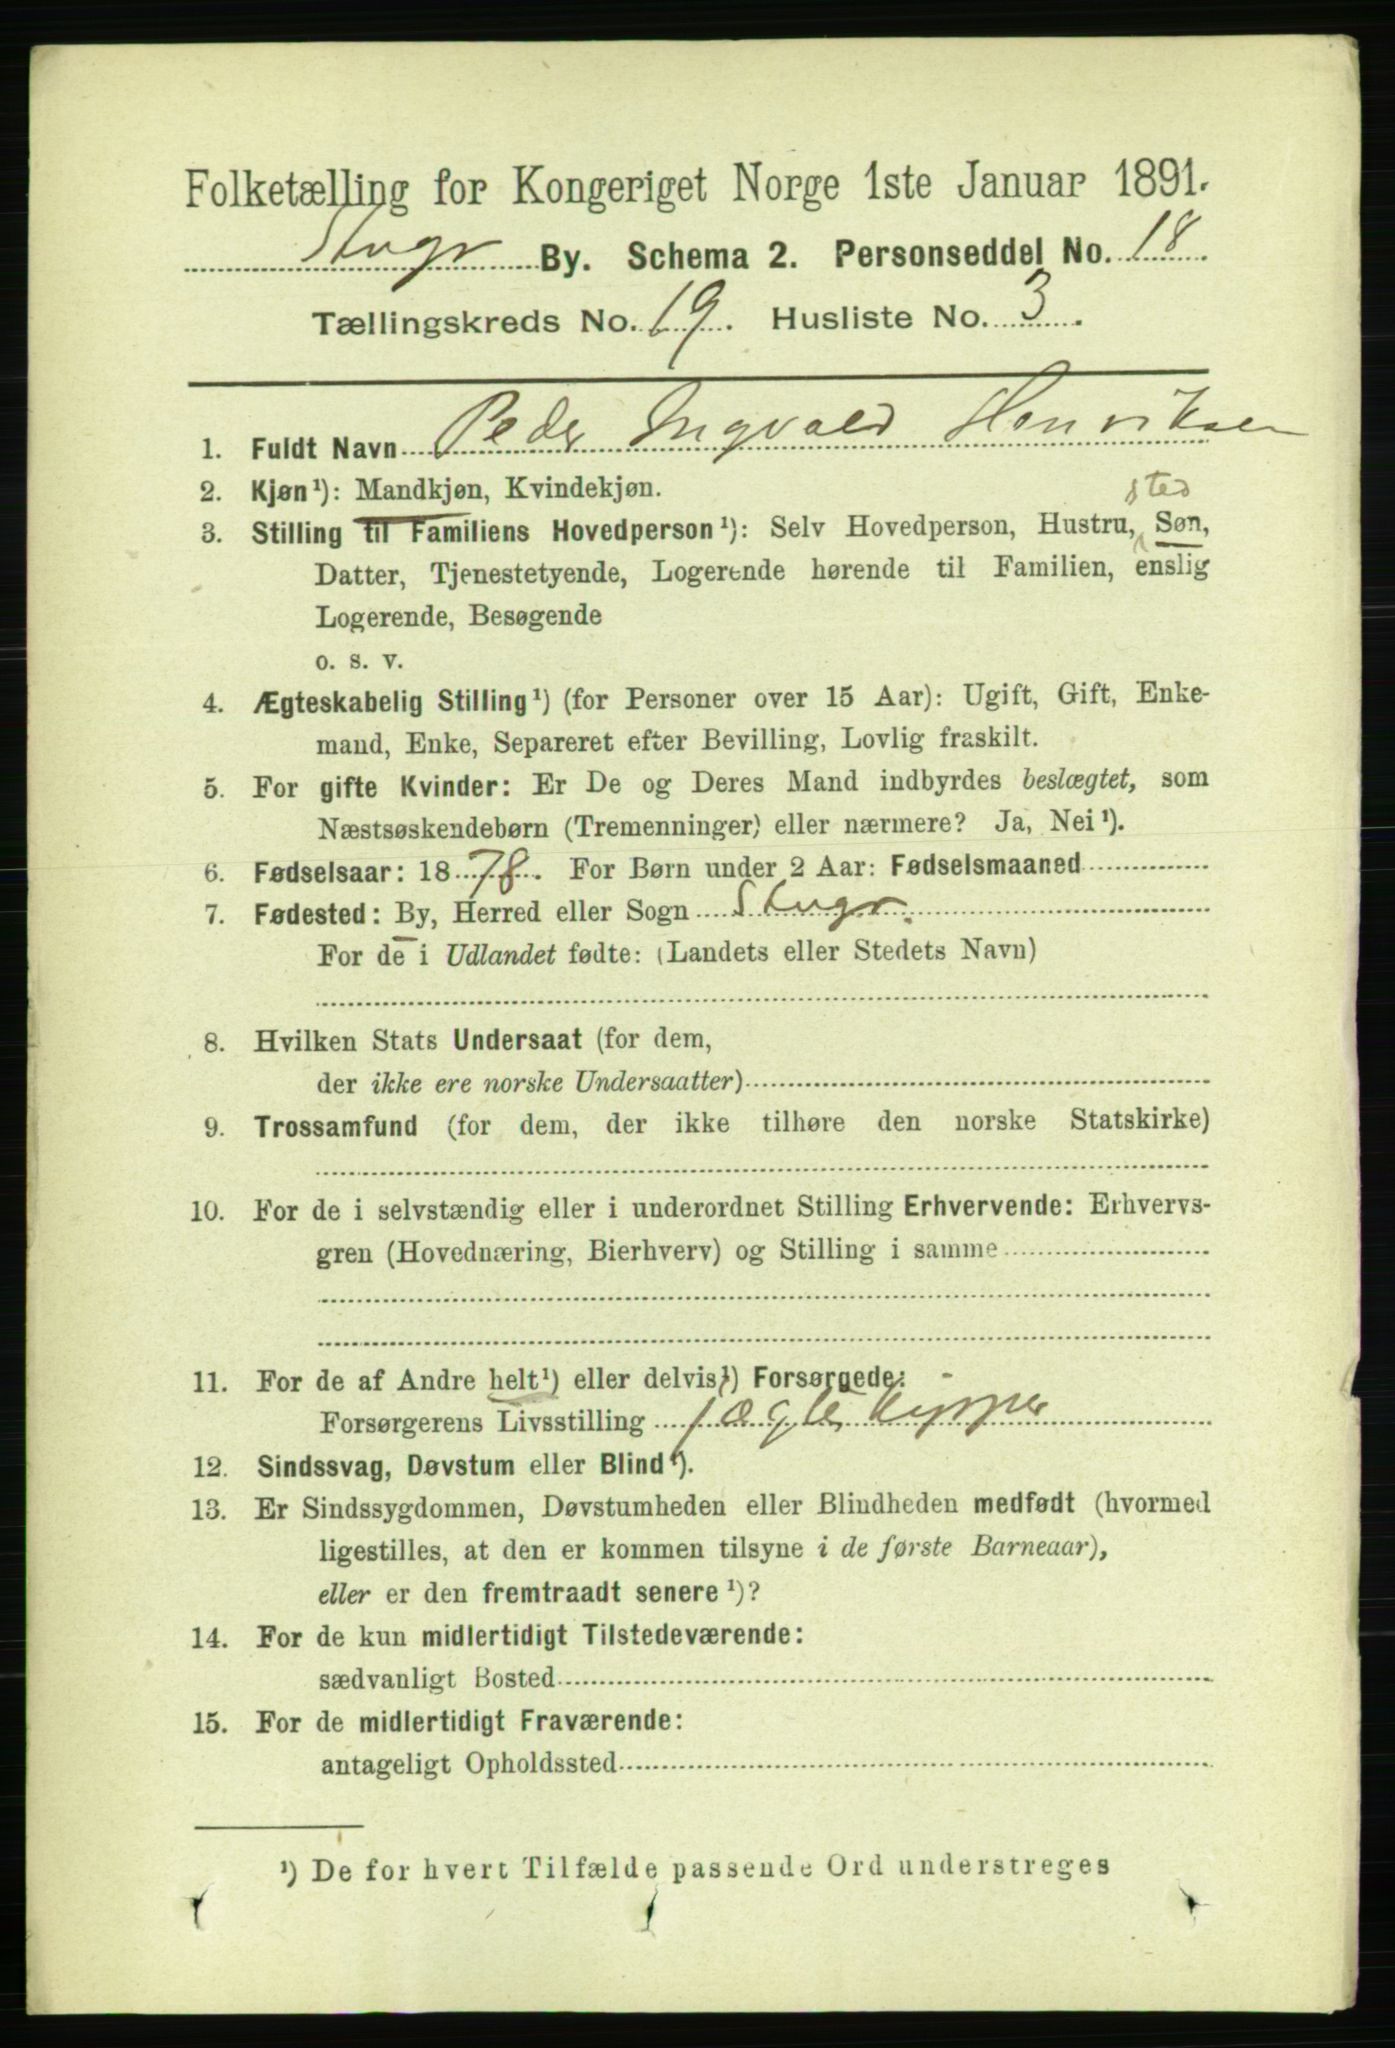 Folketælling for Kongeriget Norge 1ste Januar 1891.
Stvgr By. Schema 2. Personseddel No. 18
Tællingskreds No. 19. Husliste No. 3.
1. Fuldt Navn Peder Ingvald Henriksen
2. Kjøn¹): Mandkjøn, Kvindekjøn.
sted
3. Stilling til Familiens Hovedperson¹): Selv Hovedperson, Hustru, Søn,
Datter, Tjenestetyende, Logerende hørende til Familien, enslig
Logerende, Besøgende
o. s. v.
4. Ægteskabelig Stilling¹) (for Personer over 15 Aar): Ugift, Gift, Enke-
mand, Enke, Separeret efter Bevilling, Lovlig fraskilt.
5. For gifte Kvinder: Er De og Deres Mand indbyrdes beslægtet, som
Næstsøskendebørn (Tremenninger) eller nærmere? Ja, Nei¹).
6. Fødselsaar: 1878. For Børn under 2 Aar: Fødselsmaaned
7. Fødested: By, Herred eller Sogn Stvgr.
For de i Udlandet fødte: (Landets eller Stedets Navn)
8. Hvilken Stats Undersaat (for dem,
der ikke ere norske Undersaatter)
9. Trossamfund (for dem, der ikke tilhøre den norske Statskirke)
10. For de i selvstændig eller i underordnet Stilling Erhvervende: Erhvervs-
gren (Hovednæring, Bierhverv) og Stilling i samme
11. For de af Andre helt¹) eller delvis¹) Forsørgede:
Forsørgerens Livsstilling
12. Sindssvag, Døvstum eller Blind¹).
13. Er Sindssygdommen, Døvstumheden eller Blindheden medfødt (hvormed
ligestilles, at den er kommen tilsyne i de første Barneaar),
eller er den fremtraadt senere¹)?
14. For de kun midlertidigt Tilstedeværende:
sædvanligt Bosted
15. For de midlertidigt Fraværende:
antageligt Opholdssted
¹) De for hvert Tilfælde passende Ord understreges